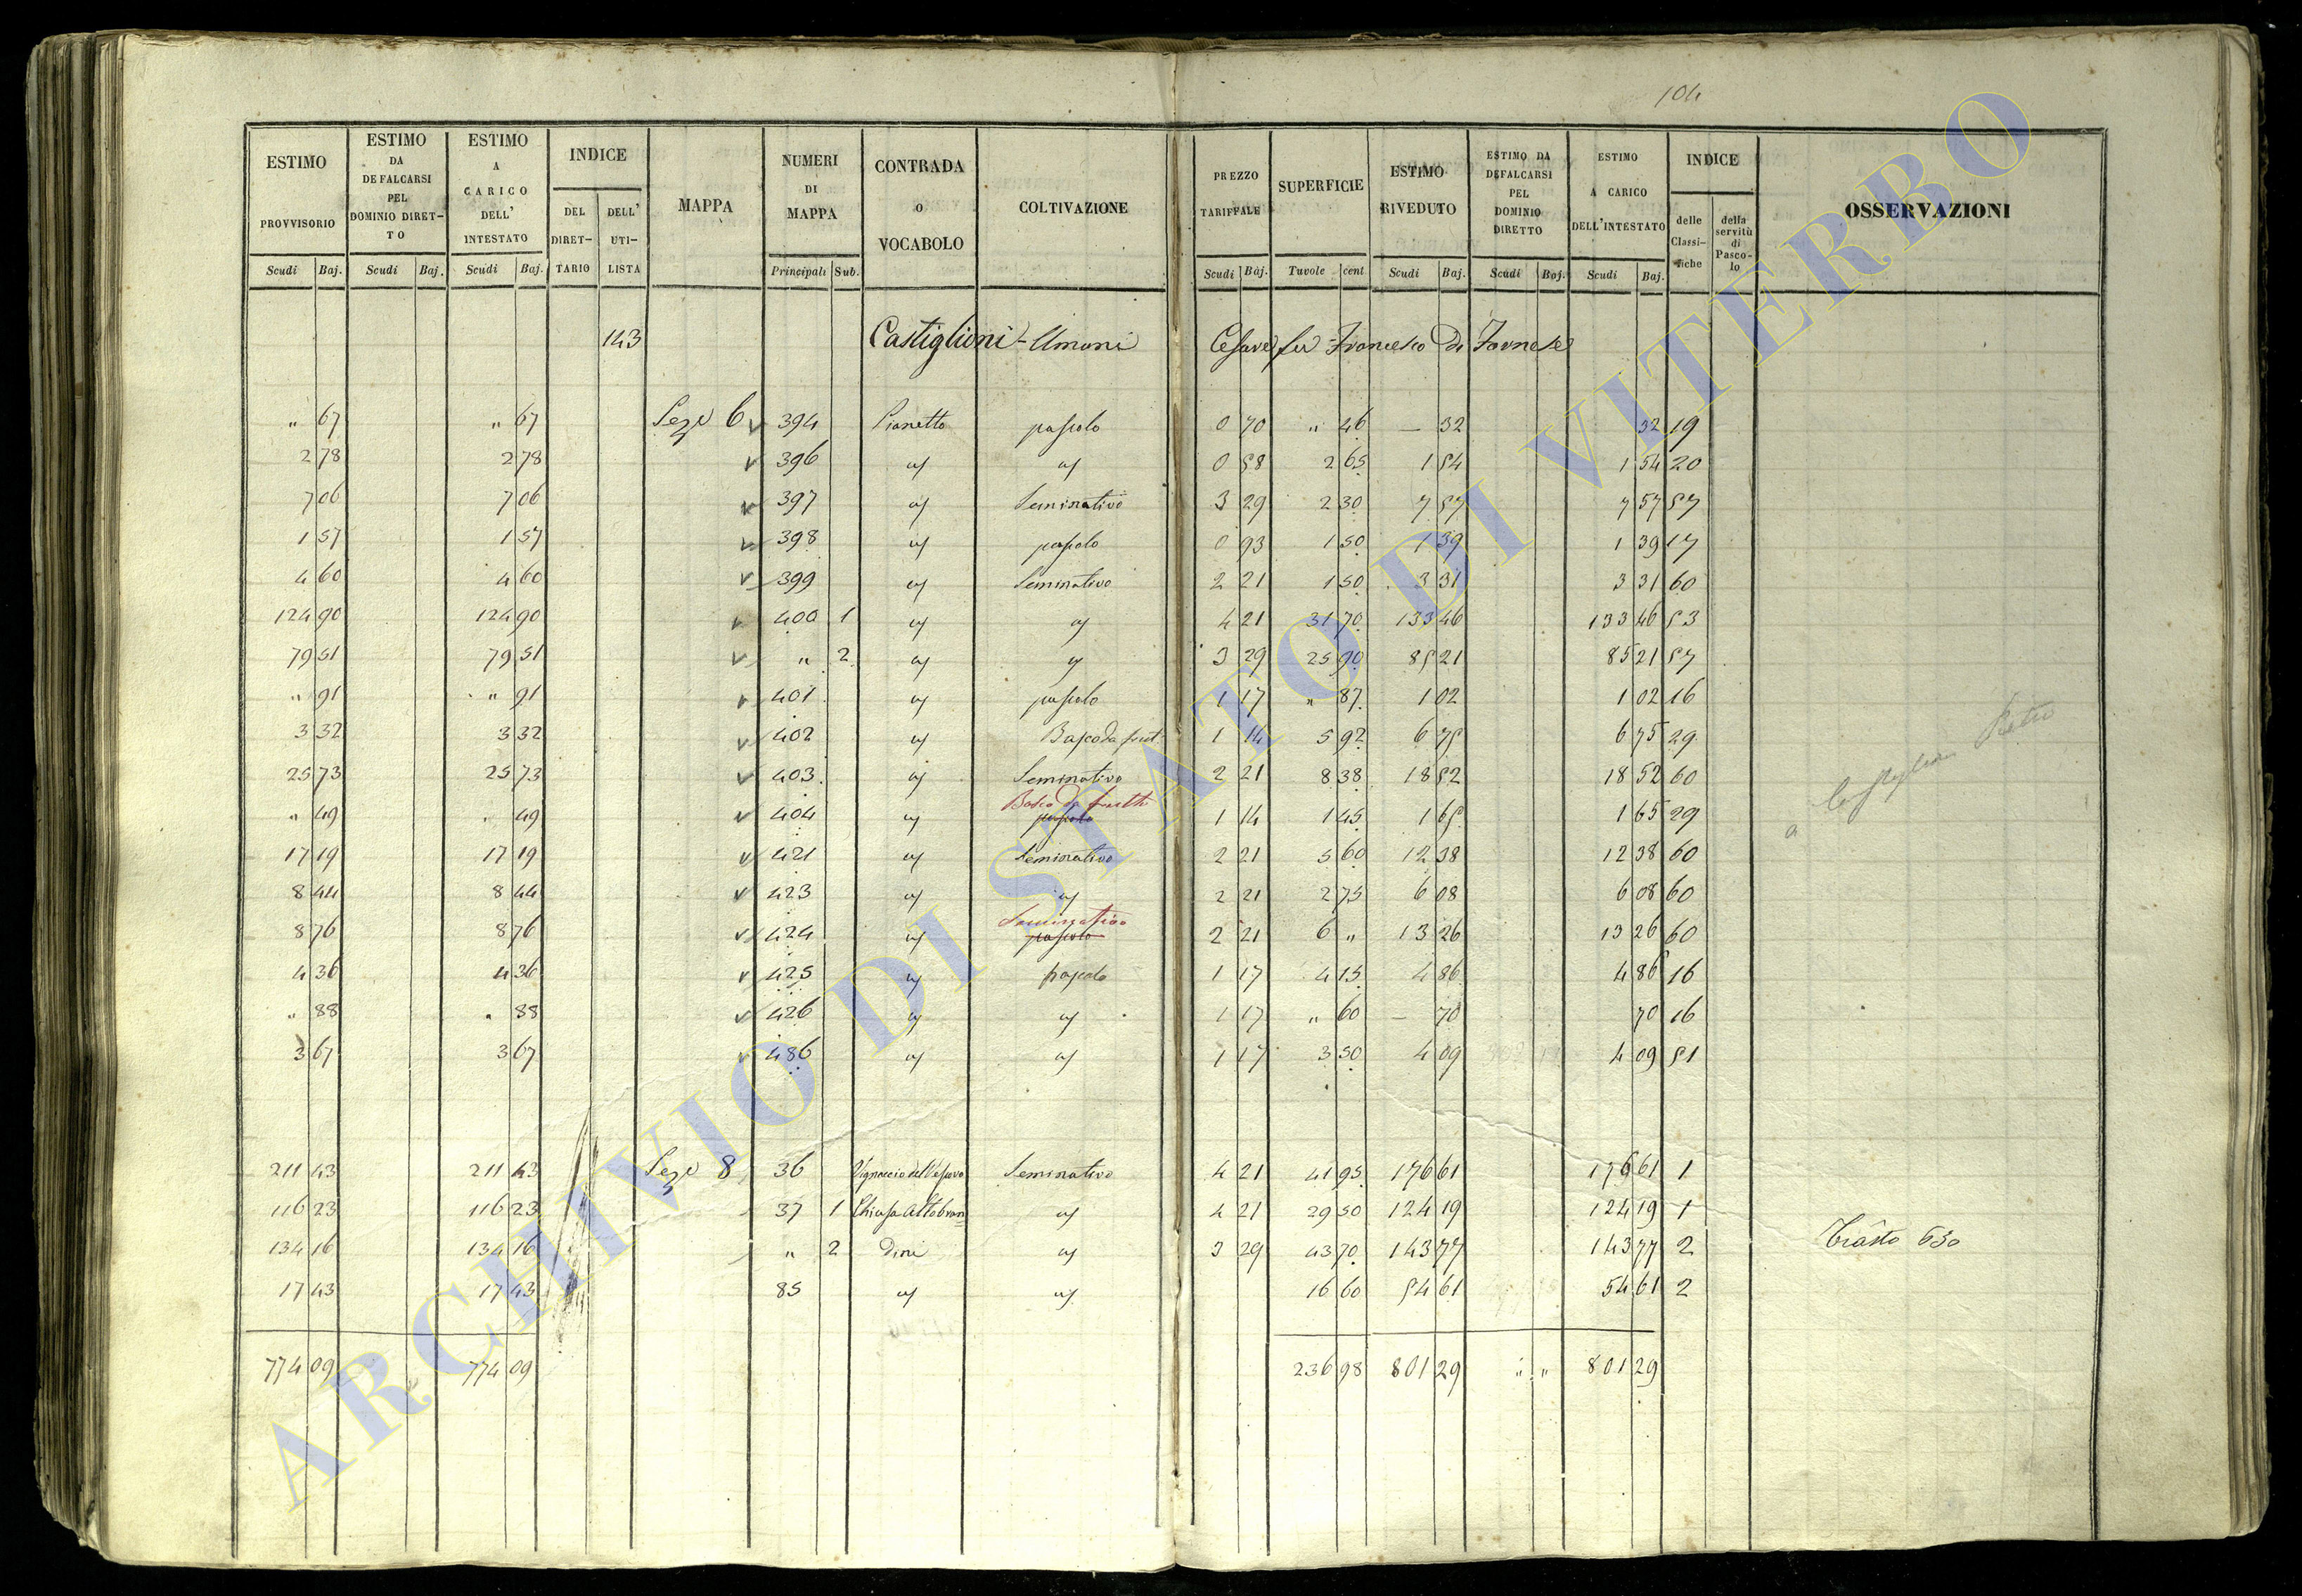 104
ESTIMO PROVVISORIO Scudi Baj. ESTIMO DA DEFALCARSI PEL DOMINIO DIRETTO Scudi Baj. ESTIMO A CARICO DELL' INTESTATO Scudi Baj. INDICE DEL DIRETTARIO DELL' UTILISTA MAPPA NUMERI DI MAPPA Principali Sub. CONTRADA O VOCABOLO COLTIVAZIONE PREZZO TARIFFALE Scudi Baj. SUPERFICIE Tavole cent ESTIMO RIVEDUTO Scudi Baj. ESTIMO DA DEFALCARSI PEL DOMINIO DIRETTO Scudi Baj. ESTIMO A CARICO DELL'INTESTATO Scudi Baj. INDICE delle Classifiche della servitù di Pascolo OSSERVAZIONI
143 Castiglioni - Umani Cesare fu Francesco di Farnese
" 67 " 67 Sez.e 6 394 Pianetto pascolo 0 70 " 46 — 32 32 19
2 78 2 78 396 " " 0 58 2 65 1 54 1 54 20
7 06 7 06 397 " Seminativo 3 29 2 30 7 57 7 57 57
1 57 1 57 398 " pascolo 0 93 1 50 1 39 1 39 17
4 60 4 60 399 " Seminativo 2 21 1 50 3 31 3 31 60
124 90 124 90 400 1 " " 4 21 31 70 133 46 133 46 53
79 51 79 51 " 2 " " 3 29 25 90 85 21 85 21 57
" 91 " 91 401 " pascolo 1 17 " 87 1 02 1 02 16
3 32 3 32 402 " Bosco da frut. 1 14 5 92 6 75 6 75 29
25 73 25 73 403 " Seminativo 2 21 8 38 18 52 18 52 60
" 49 " 49 404 " Bosco da frutti pascolo 1 14 1 45 1 65 1 65 29
a Castiglioni Pietro
17 19 17 19 421 " Seminativo 2 21 5 60 12 38 12 38 60
8 44 8 44 423 " " 2 21 2 75 6 08 6 08 60
8 76 8 76 424 " Seminativo pascolo 2 21 6 " 13 26 13 26 60
4 36 4 36 425 " pascolo 1 17 4 15 4 86 4 86 16
" 88 " 88 426 " " 1 17 " 60 — 70 70 16
3 67 3 67 486 " " 1 17 3 50 4 09 4 09 51
211 43 211 43 Sez.e 8 36 Seminativo 4 21 41 95 176 61 176 61 1
116 23 116 23 37 1 Chiusa Altobran= " 4 21 29 50 124 19 124 19 1
134 16 134 16 " 2 dini " 3 29 43 70 143 77 143 77 2 630
17 43 17 43 85 " " 16 60 54 61 54 61 2
774 09 774 09 236 98 801 29 " " 801 29
ARCHIVIO DI STATO DI VITERBO